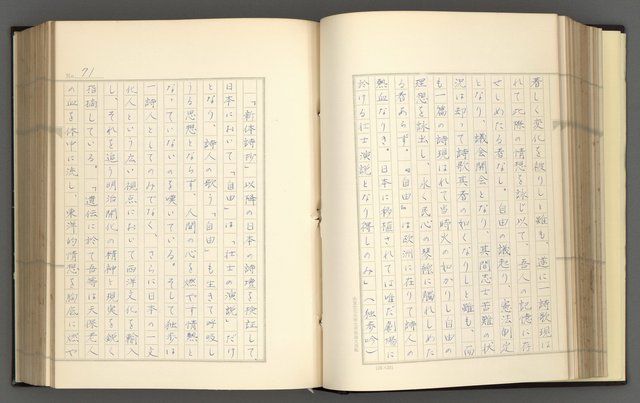 着しく変化を被りしと雖も、遂に一詩歌現は
れて此際の情想を詠じ以て、吾人の記憶に存
せしめたる者なし。自由の議起り、憲法制定
となり、議会開会となり、其間志士苦難の状
況は却って詩歌其者の如くなりしと雖も、而
も一篇の詩現はれて当時火の如かりし自由の
理想を詠出し、永く民心の琴線に触れしめた
る者あらず。「自由」は欧洲に在りて詩人の
熱血なりき、日本に移植されては唯だ劇場に
於ける壮士演説となり得しのみ」(独歩吟)
No. 71
「新体詩抄」以降の日本の詩壇を検証して、
日本において「自由」は「壮士の演説」だけ
となり、詩人の歌う「自由」も生きて呼吸し
うる思想とならず、人間の心を燃やす情熱と
なっていないのを嘆いている。そして独歩は
一詩人としてのみでなく、さらに日本の一文
化人という広い視点において西洋文化を輸入
し、それを追う明治開化の精神と現実を鋭く
指摘している。「遺伝に於て吾等は天保老人
の血を体中に流し、東洋的情想を胸底に燃や